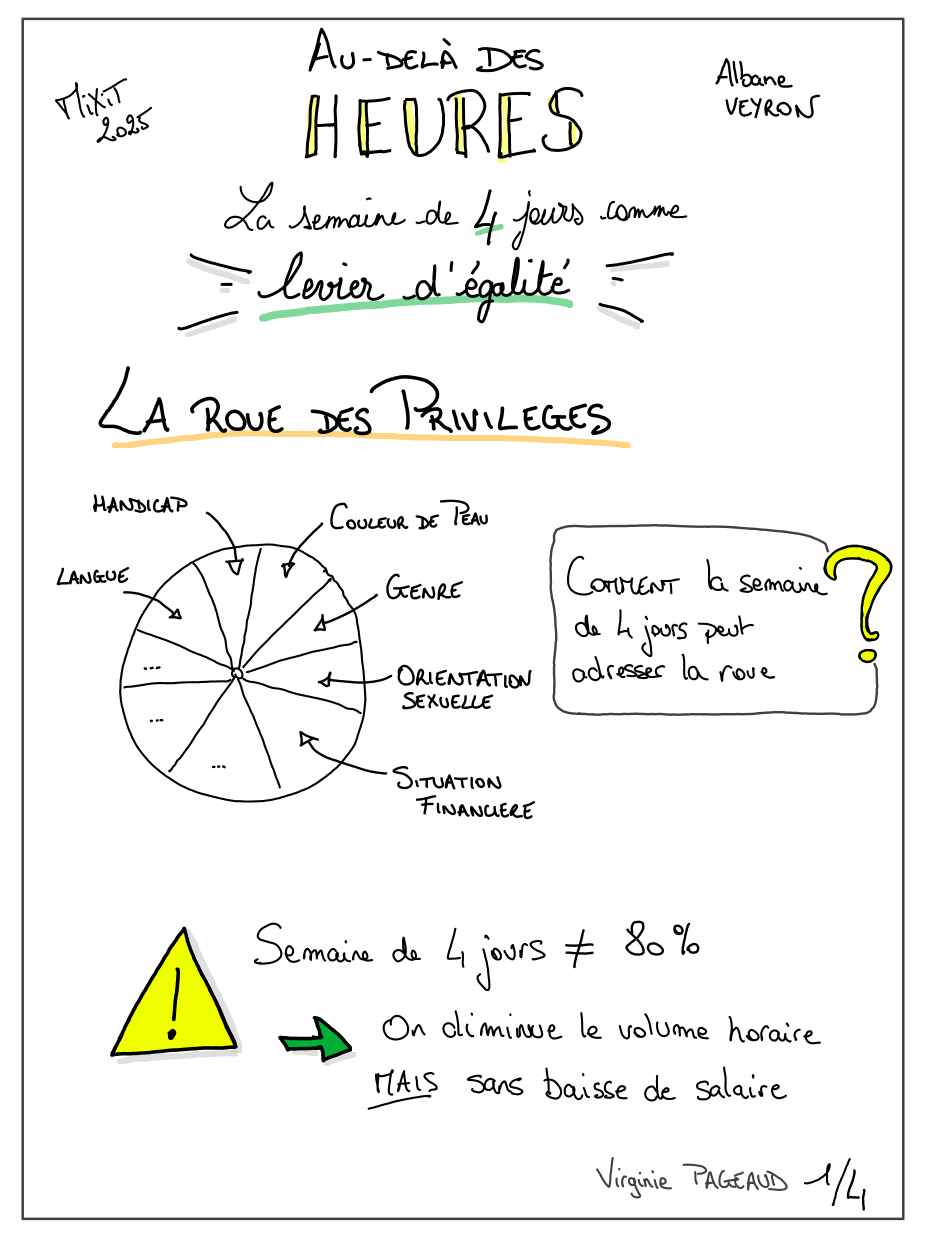 MiXiT
2025
AU-DELÀ DES
HEURES
Albane
VEYRON
La semaine de 4 jours comme
levier d'égalité
LA ROUE DES PRIVILEGES
HANDICAP
COULEUR DE PEAU
LANGUE
GENRE
ORIENTATION
SEXUELLE
SITUATION
FINANCIERE
...
...
...
COMMENT la semaine
de 4 jours peut
adresser la roue
?
!
Semaine de 4 jours ≠ 80%
On diminue le volume horaire
MAIS sans baisse de salaire
Virginie PAGEAUD 1/4